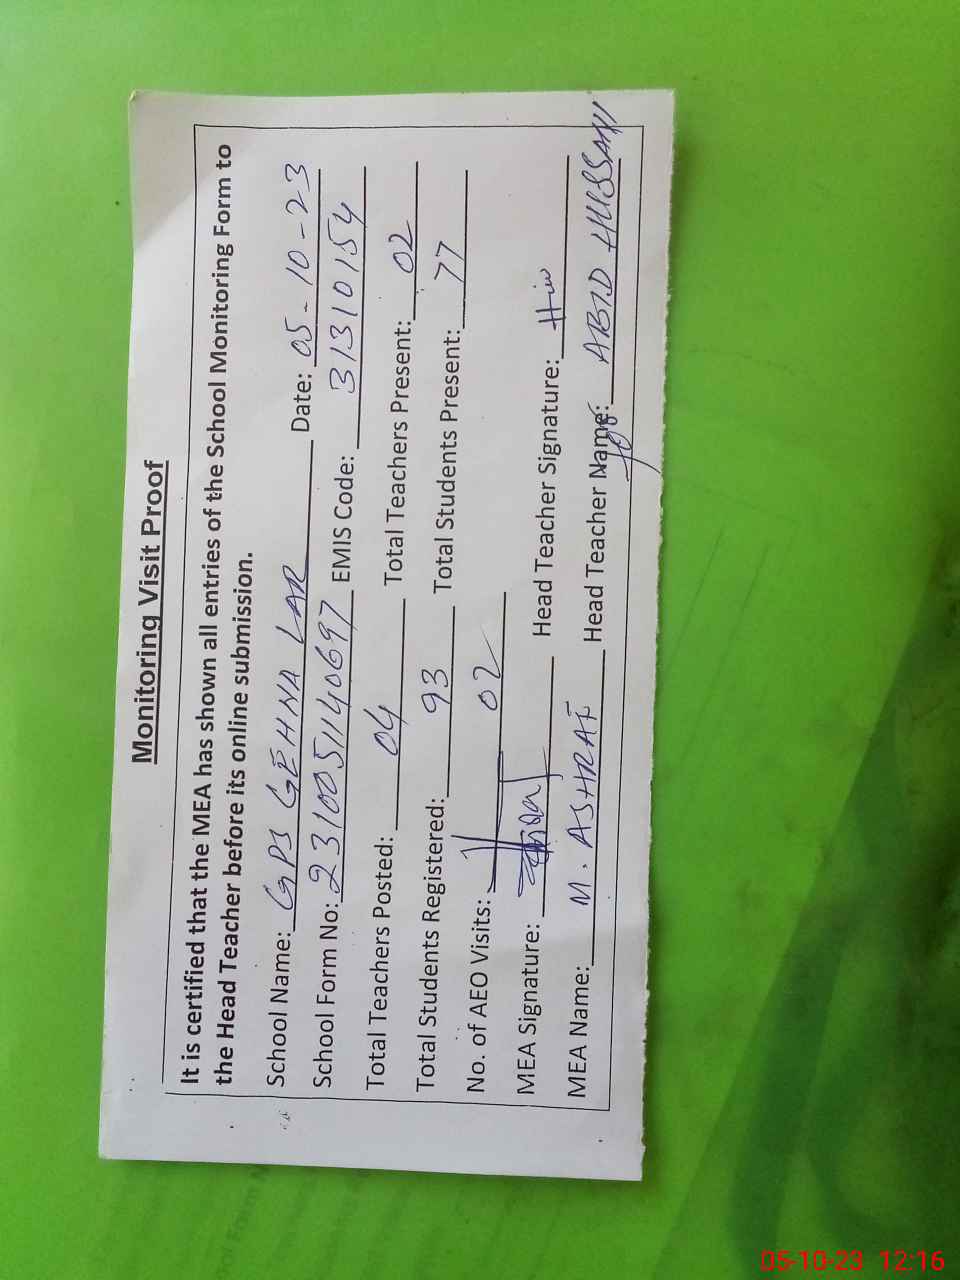 Monitoring Visit Proof
It is certified that the MEA has shown all entries of the School Monitoring Form to
the Head Teacher before its online submission.
School Name: GPS GEHNA LAR Date: 05-10-23
School Form No: 2310051140697 EMIS Code: 31310154
Total Teachers Posted: 04 Total Teachers Present: 02
Total Students Registered: 93 Total Students Present: 77
No. of AEO Visits: 02
MEA Signature: Head Teacher Signature:
MEA Name: M. ASHRAF Head Teacher Name: ABID HUSSAIN
for
05-10-23 12:16